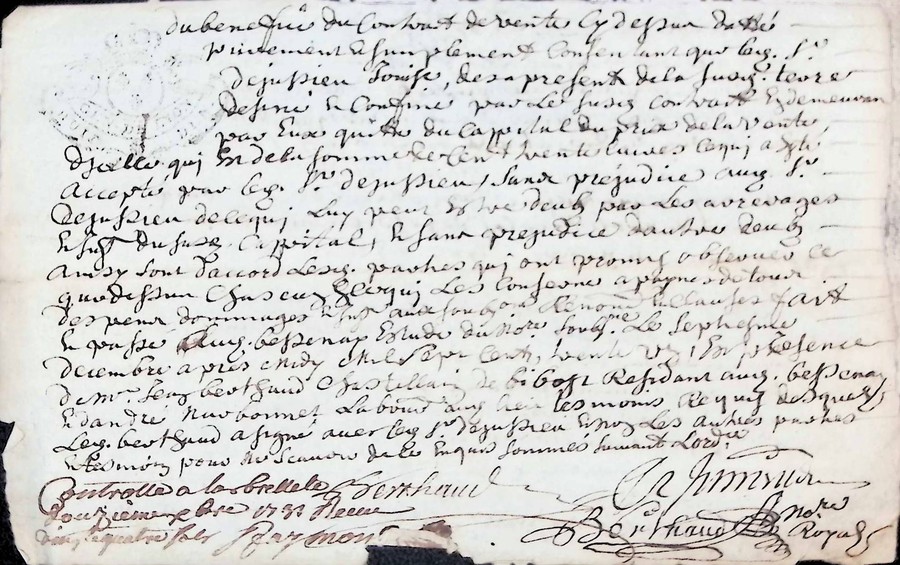 du beneffice du Contract de vente Cy dessus datté
purement & simplement Consentant que led. Sr.
Dejussieu Jouisse, des a present de la susd. terre
desiné & Confiné par Le susd. Contract Et demeuran
par Eux quitte du Cappital du prix de la vente
Dicelle qui Est de la somme de Cent vente Livres Ce qui a esté
accepté par led. Sr. dejussieu, sans préjudice aud. Sr.
Dejussieu de ce qui Luy peut Estre deub par Les arrerages
du susd. Cappital, & sans prejudice dautre deub
Ainsy sont d'accord Lesd. parties qui ont promis observer Ce
que dessus Chacun En ce qui Les Conserne a payne de tous
despens dommages & clauses fait
& passé Aud. bessenay Estude du No.re soub.ne Le septiesme
decembre apres midy Mil sept cent, trente un, En presence
De Mr. Jean berthaud Chastellain de bibost Residant aud. bessenay
Et dandré Narbonnet Laboureur aud. lieu tesmoins Requis desquels
Led. berthaud a signé avec led. Sr. dejussieu & non Les autres parties
& tesmoin pour ne sçavoir de ce Enquis sommés suivant Lord.ce
Controllé a la bresle le Berthaud
douzieme xbre 1731 Receu
vingt quatre sols
Berthaud no.re Royal